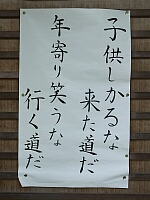 子供しかるな
来た道だ
年寄り笑うな
行く道だ